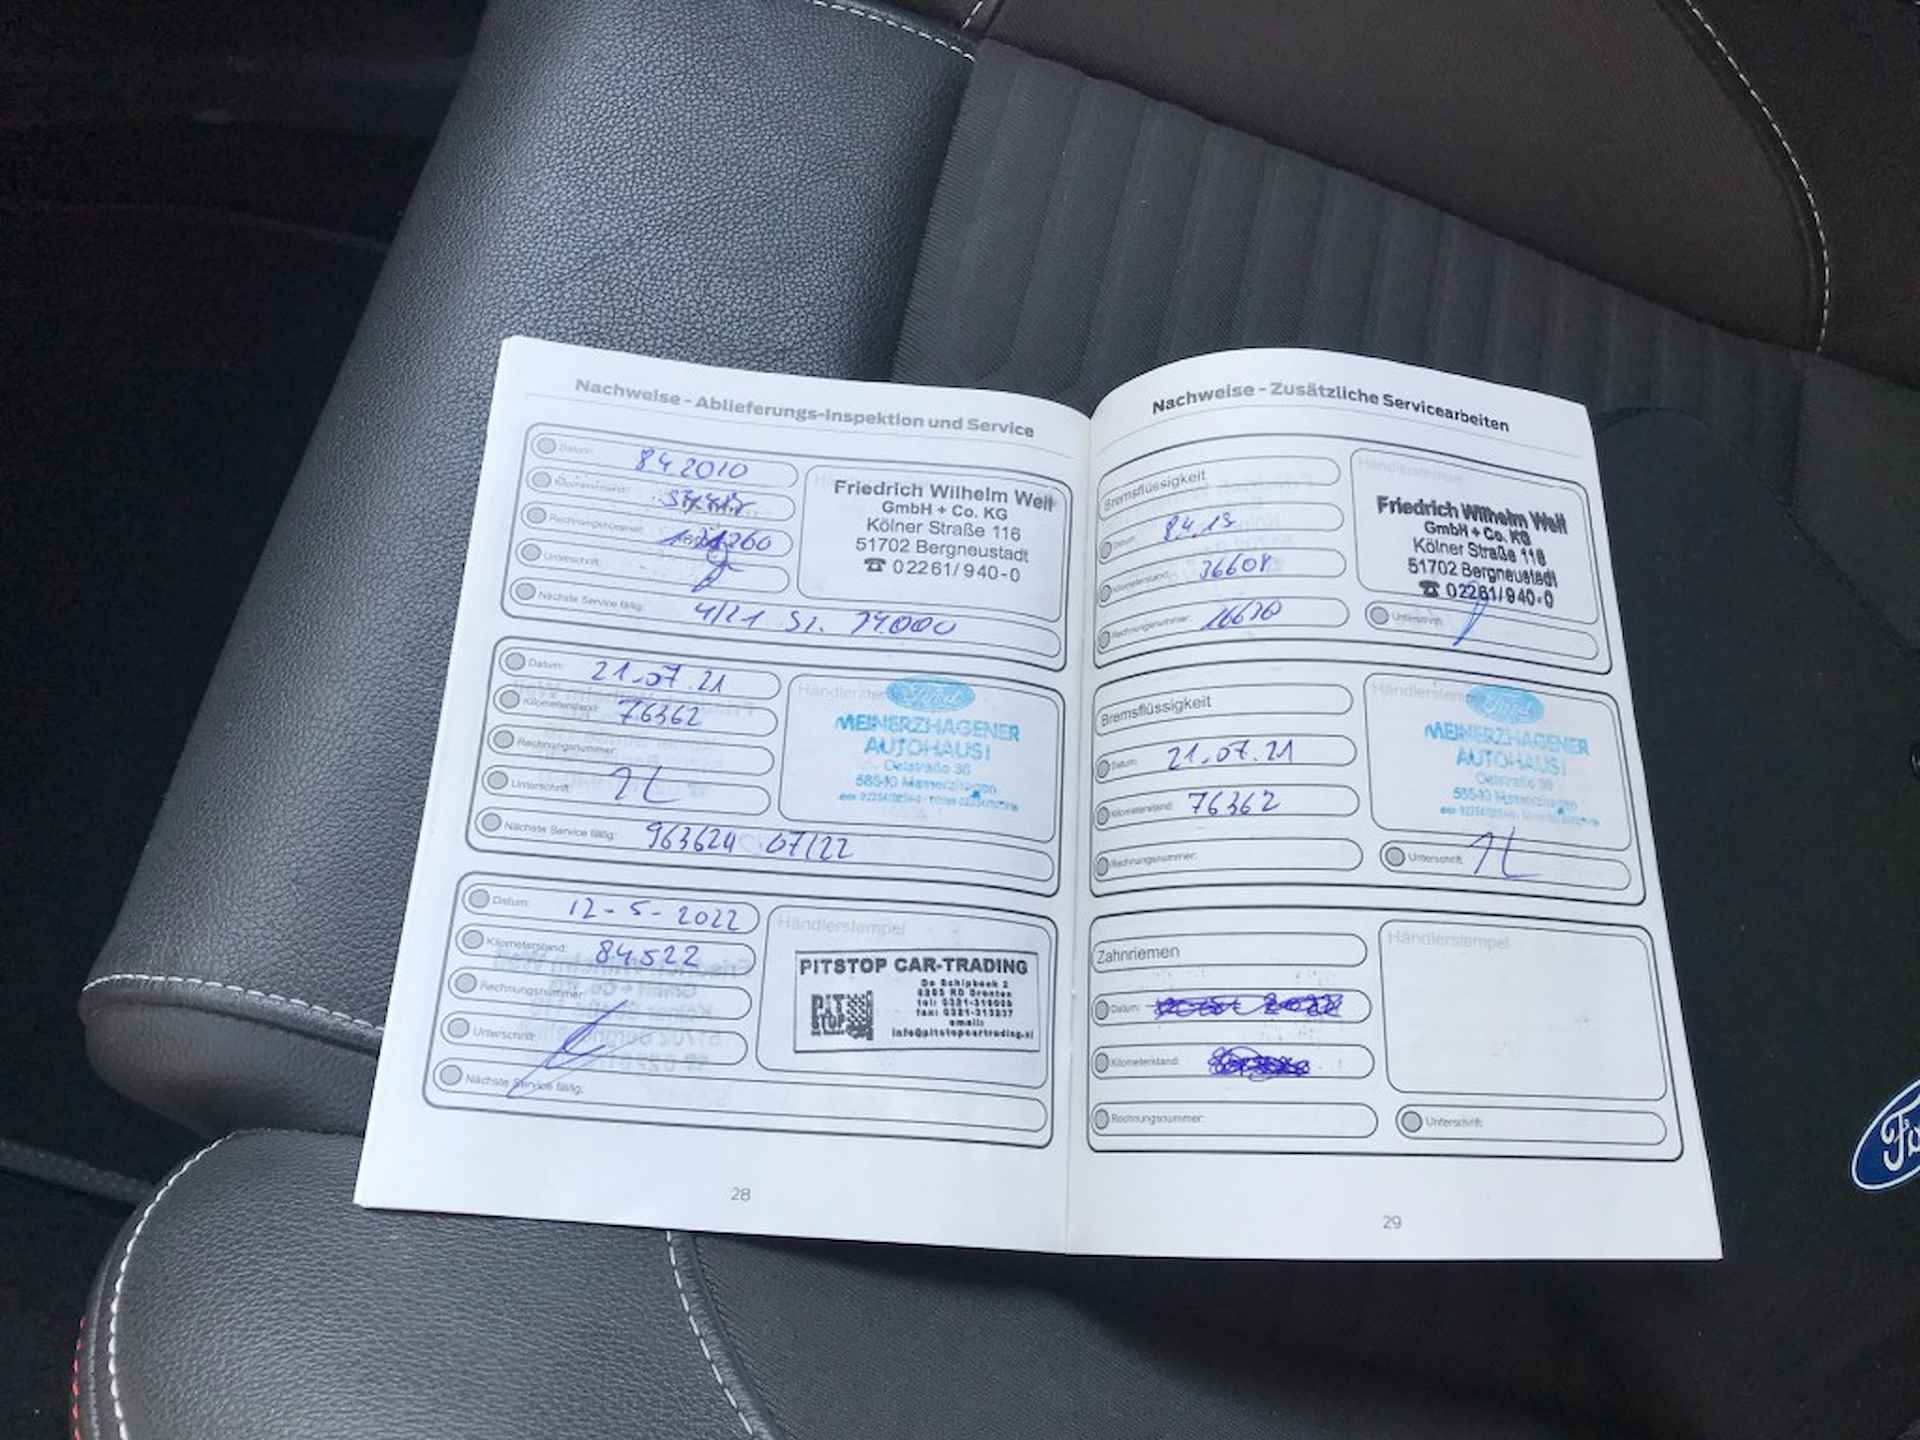 Nachweise - Ablieferungs-Inspektion und Service
Datum: 8.4.2010
Kilometerstand:
Rechnungsnummer:
Unterschrift:
Nächste Service fällig: 4/21
Friedrich Wilhelm Welf
GmbH + Co. KG
Kölner Straße 116
51702 Bergneustadt
☎ 02261/940-0
Datum: 21.07.21
Kilometerstand: 76362
Rechnungsnummer:
Unterschrift:
Nächste Service fällig: 07/22
Händlerstempel
Ford
MEINERZHAGENER
AUTOHAUS
Datum: 12-5-2022
Kilometerstand: 84.522
Rechnungsnummer:
Unterschrift:
Nächste Service fällig:
Händlerstempel
PITSTOP CAR-TRADING
PIT
STOP
De Schipbeek 2
Dronten
tel: 0321-
fax: 0321-313237
email:
info@pitstopcartrading.nl
28
Nachweise - Zusätzliche Servicearbeiten
Bremsflüssigkeit
Datum:
Kilometerstand:
Rechnungsnummer:
Händlerstempel
Friedrich Wilhelm Welf
GmbH + Co. KG
Kölner Straße 116
51702 Bergneustadt
☎ 02261/940-0
Unterschrift:
Bremsflüssigkeit
Datum: 21.07.21
Kilometerstand: 76362
Rechnungsnummer:
Händlerstempel
Ford
MEINERZHAGENER
AUTOHAUS
Unterschrift:
Zahnriemen
Datum:
Kilometerstand:
Rechnungsnummer:
Händlerstempel
Unterschrift:
29